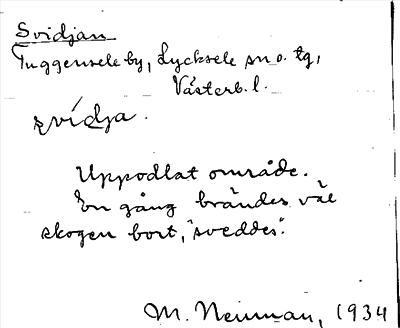 Svidjan
Tuggensele by, Lycksele sn o. tg,
Västerb. l.
svídja.
Uppodlat område.
En gång brändes väl
skogen bort, "sveddes".
M. Neuman, 1934